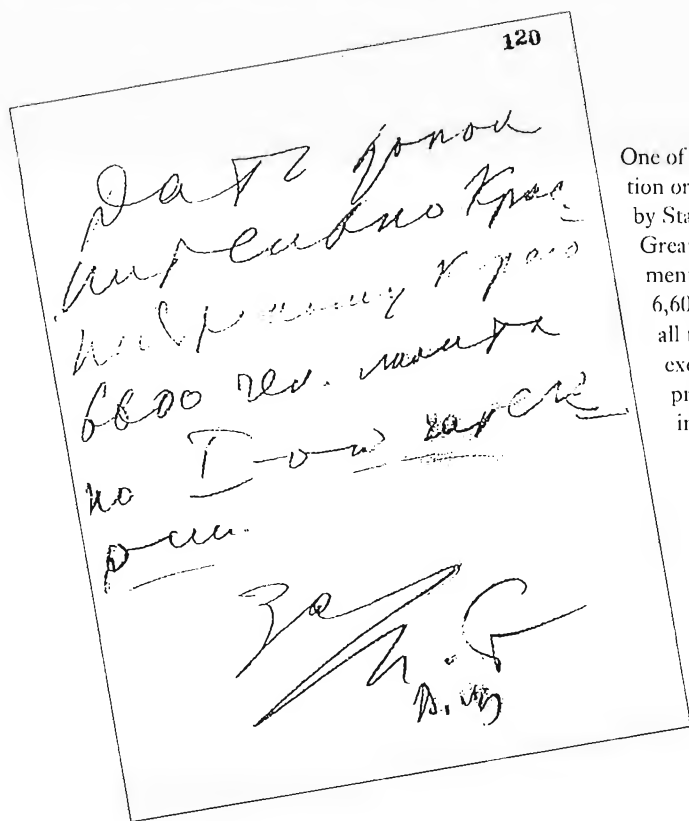 120
Дать допол
нительно Крас-
ноярскому краю
6600 чел. лимита
по I-ой категории
За
И. Ст
В. М
One of
tion or
by Sta
Grea
ment
6,60
all t
exc
pr
in